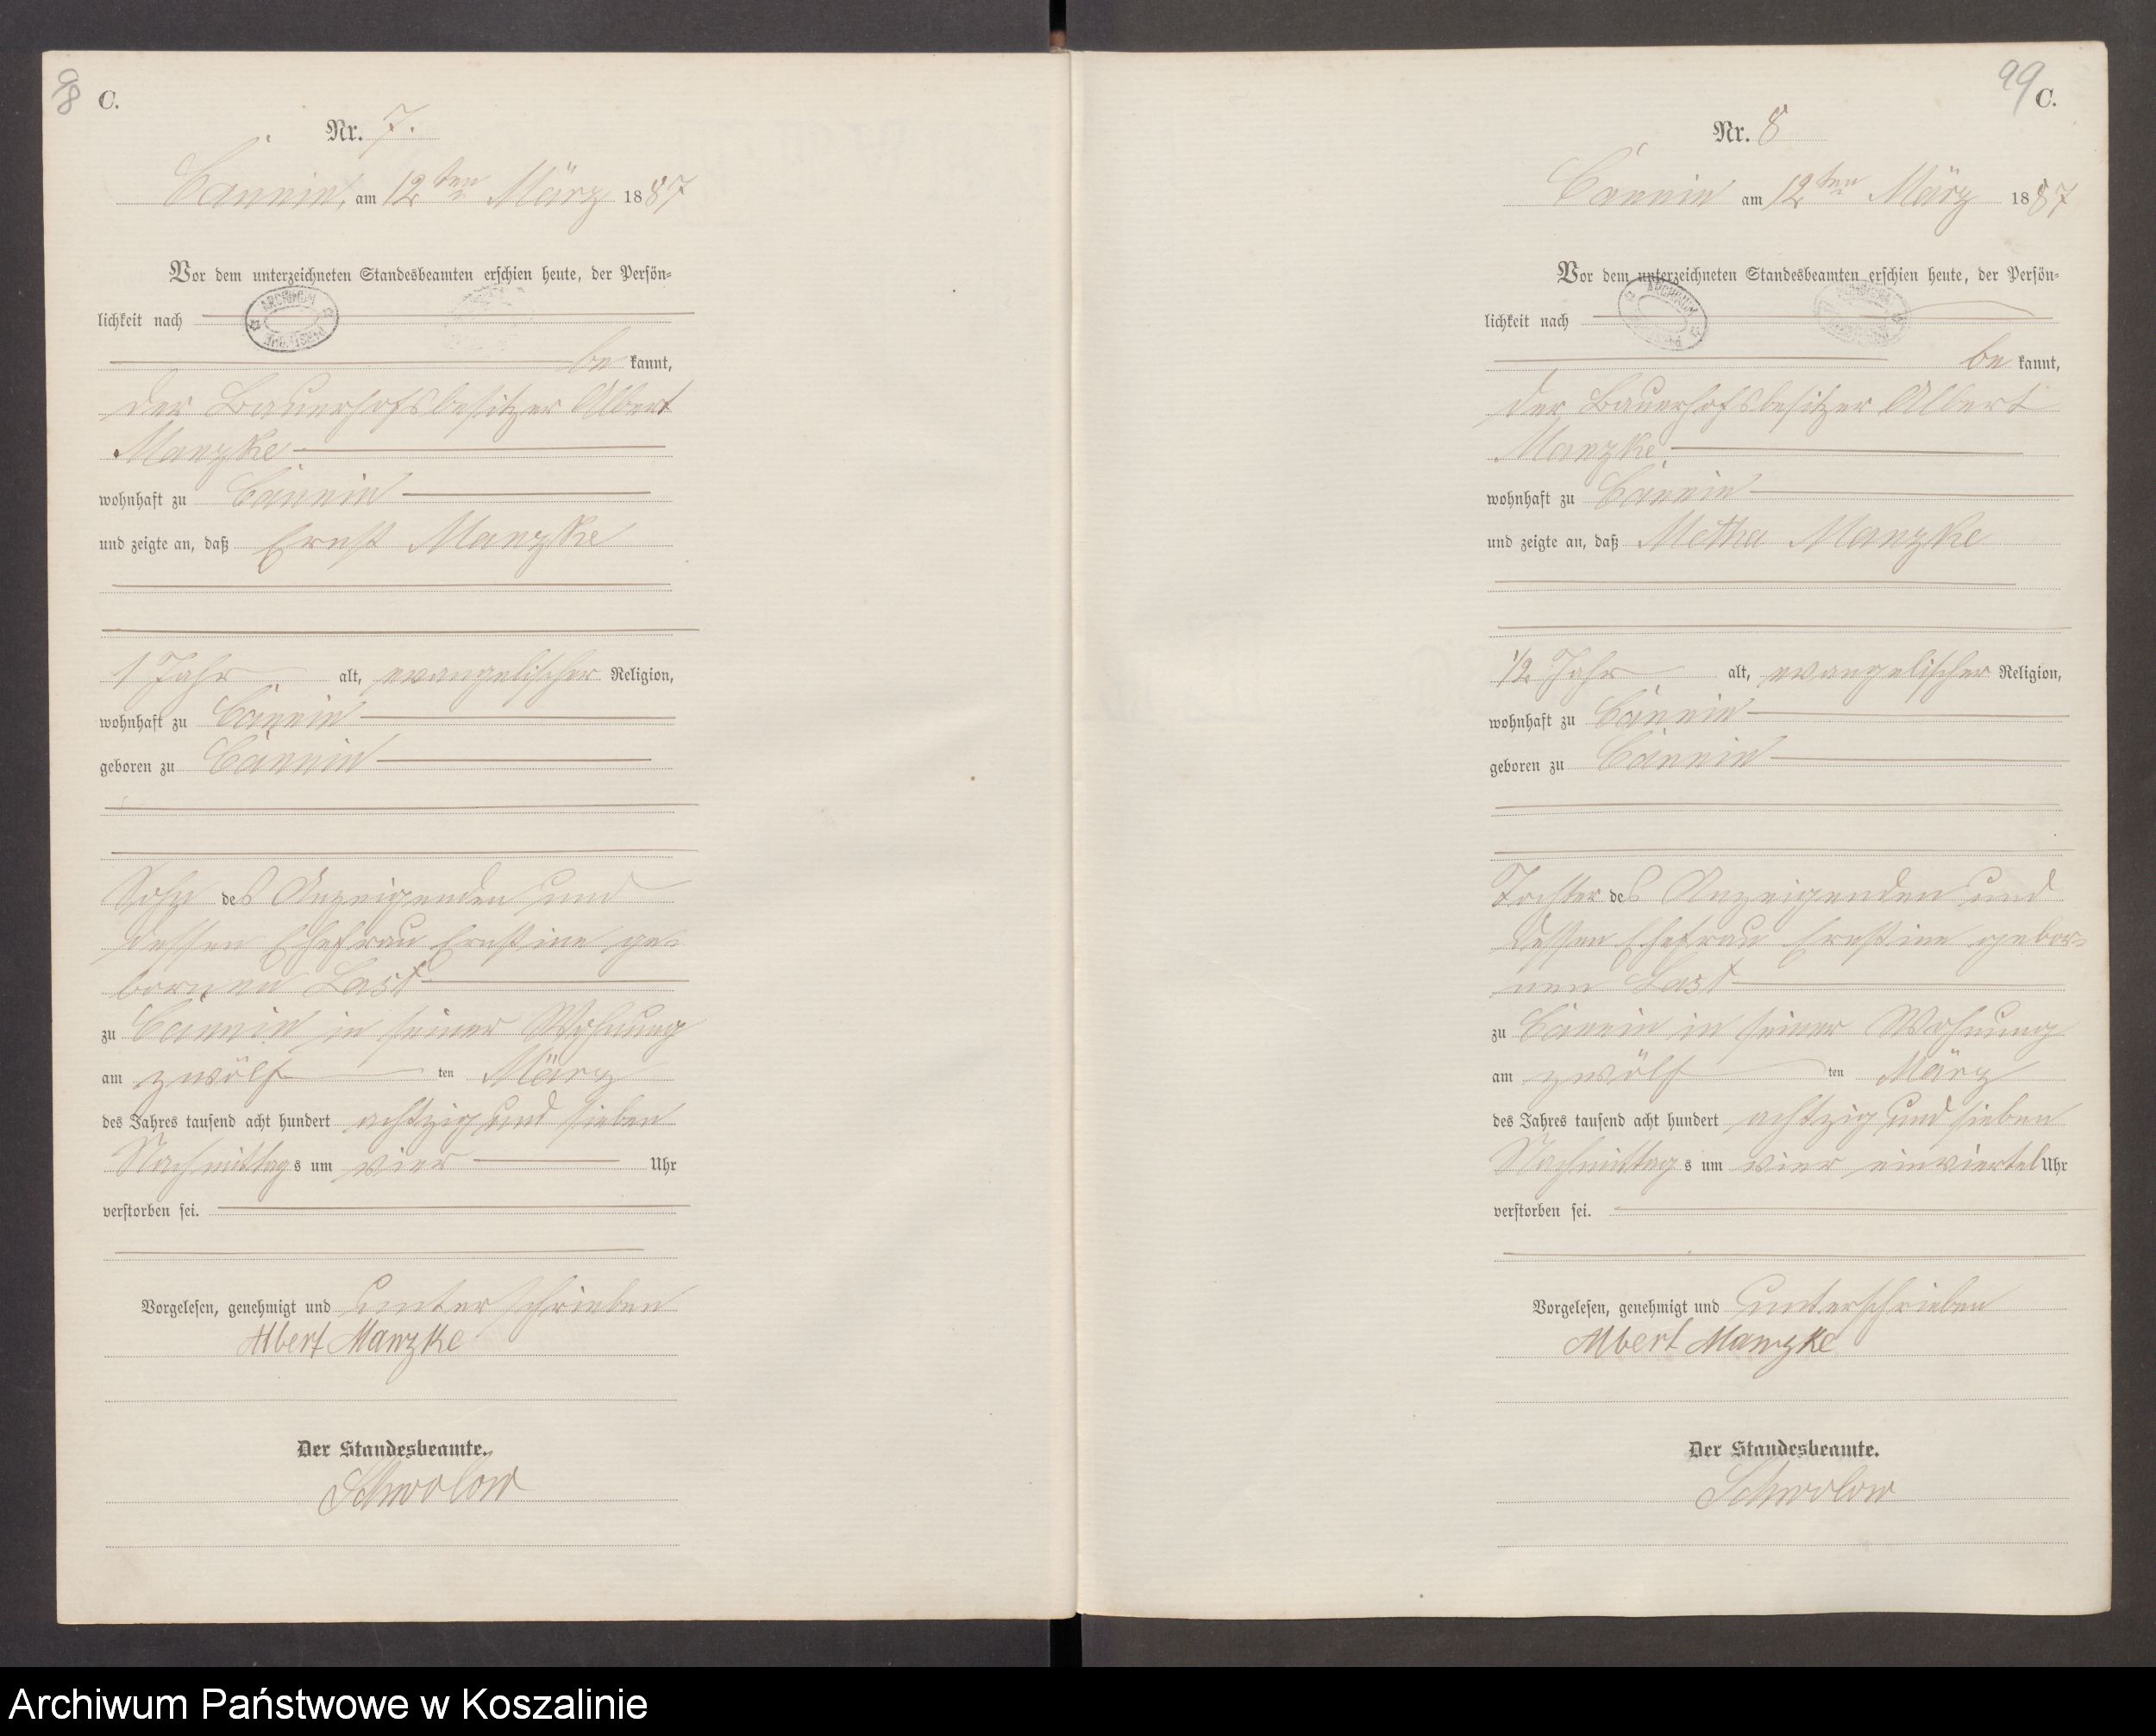 98 C.
Nr. 7.
Cannin, am 12ten März 1887
Vor dem unterzeichneten Standesbeamten erschien heute, der Persön=
lichkeit nach
be kannt,
der Bauerhofsbesitzer Albert
Manzke
wohnhaft zu Cannin
und zeigte an, daß Ernst Manzke
1 Jahr alt, evangelischer Religion,
wohnhaft zu Cannin
geboren zu Cannin
Sohn des Anzeigenden und
dessen Ehefrau Ernstine ge=
bornen Last
zu Cannin in seiner Wohnung
am zwölf ten März
des Jahres tausend acht hundert achtzig und sieben
Nachmittags um vier Uhr
verstorben sei.
Vorgelesen, genehmigt und unterschrieben
Albert Manzke
Der Standesbeamte.
Schwolow
99 C.
Nr. 8
Cannin am 12ten März 1887
Vor dem unterzeichneten Standesbeamten erschien heute, der Persön=
lichkeit nach
be kannt,
der Bauerhofsbesitzer Albert
Manzke
wohnhaft zu Cannin
und zeigte an, daß Metha Manzke
1/2 Jahr alt, evangelischer Religion,
wohnhaft zu Cannin
geboren zu Cannin
Tochter des Anzeigenden und
dessen Ehefrau Ernstine gebor=
nen Last
zu Cannin in seiner Wohnung
am zwölf ten März
des Jahres tausend acht hundert achtzig und sieben
Nachmittags um vier einviertel Uhr
verstorben sei.
Vorgelesen, genehmigt und unterschrieben
Albert Manzke
Der Standesbeamte.
Schwolow
Archiwum Państwowe w Koszalinie